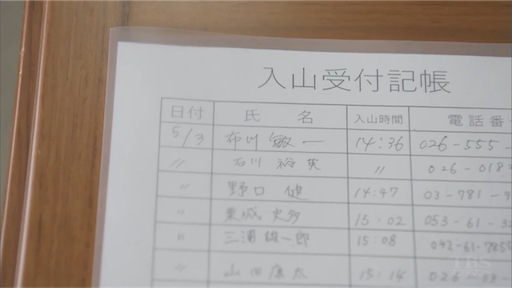 入山受付記帳
日付 氏 名 入山時間 電話番
5/3 布川 敏一 14:36 026-555-
〃 石川 裕英 〃 026-018
〃 野口 健 14:47 03-781-
〃 東城 史 15:02 053-61-3
〃 三浦 雄一郎 15:08 042-61-785
〃 山田 康太 15:14 026-33-
TBS